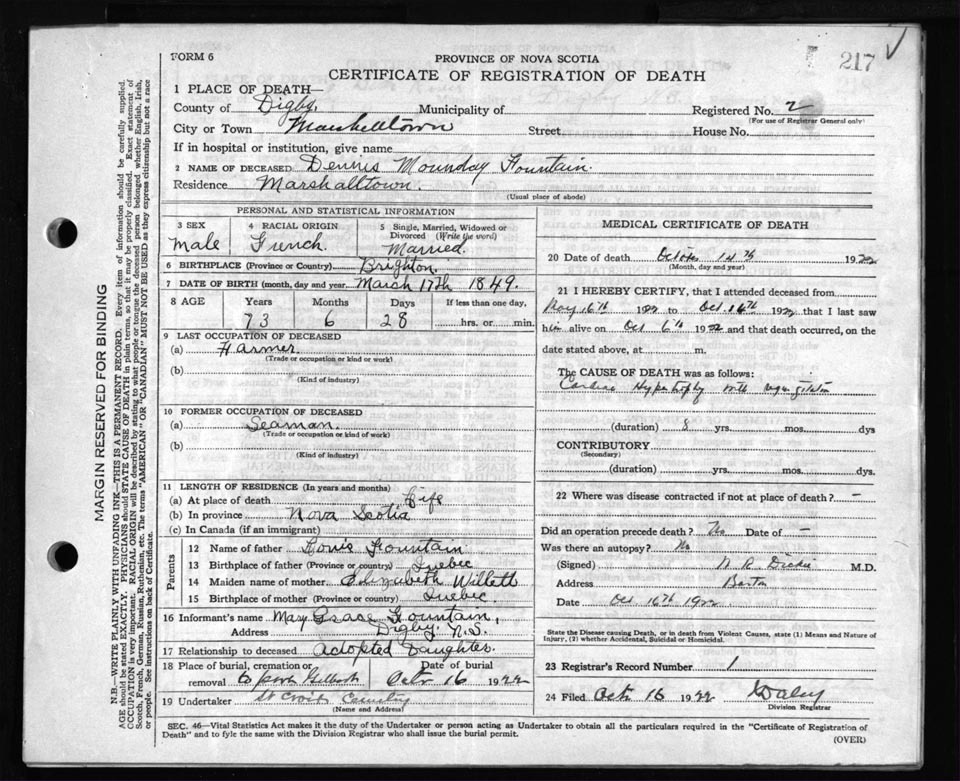 217 ✓
FORM 6
PROVINCE OF NOVA SCOTIA
CERTIFICATE OF REGISTRATION OF DEATH
1 PLACE OF DEATH—
County of Digby. Municipality of Registered No. 2
(For use of Registrar General only)
City or Town Marshalltown Street House No.
If in hospital or institution, give name
2 NAME OF DECEASED Dennis Mounday Fountain.
Residence Marshalltown.
(Usual place of abode)
PERSONAL AND STATISTICAL INFORMATION
3 SEX 4 RACIAL ORIGIN 5 Single, Married, Widowed or Divorced (Write the word)
Male French. Married.
6 BIRTHPLACE (Province or Country) Brighton.
7 DATE OF BIRTH (month, day and year) March 17th 1849.
8 AGE Years Months Days If less than one day,
73 6 28 hrs. or min.
9 LAST OCCUPATION OF DECEASED
(a) Farmer.
(Trade or occupation or kind of work)
(b)
(Kind of industry)
10 FORMER OCCUPATION OF DECEASED
(a) Seaman.
(Trade or occupation or kind of work)
(b)
(Kind of industry)
11 LENGTH OF RESIDENCE (In years and months)
(a) At place of death Life
(b) In province Nova Scotia
(c) In Canada (if an immigrant)
Parents
12 Name of father Louis Fountain
13 Birthplace of father (Province or country) Quebec
14 Maiden name of mother Elizabeth Willett
15 Birthplace of mother (Province or country) Quebec.
16 Informant's name Mary Grace Fountain,
Address Digby. N.S.
17 Relationship to deceased Adopted Daughter.
18 Place of burial, cremation or removal Date of burial
Oct 16 1922
19 Undertaker
(Name and Address)
MEDICAL CERTIFICATE OF DEATH
20 Date of death October 14th 1922
(Month, day and year)
21 I HEREBY CERTIFY, that I attended deceased from
May 16th 1922 to Oct. 14th 1922 that I last saw
him alive on Oct 6th 1922 and that death occurred, on the
date stated above, at m.
The CAUSE OF DEATH was as follows:
Cardiac Hypertrophy with
(duration) 8 yrs. mos. dys
CONTRIBUTORY
(Secondary)
(duration) yrs. mos. dys.
22 Where was disease contracted if not at place of death? —
Did an operation precede death? No Date of —
Was there an autopsy? No
(Signed) Dickie M.D.
Address Barton
Date Oct 16th 1922
State the Disease causing Death, or in death from Violent Causes, state (1) Means and Nature of Injury, (2) whether Accidental, Suicidal or Homicidal.
23 Registrar's Record Number 1
24 Filed Oct 16 1922 Daley
Division Registrar
SEC. 46—Vital Statistics Act makes it the duty of the Undertaker or person acting as Undertaker to obtain all the particulars required in the "Certificate of Registration of
Death" and to fyle the same with the Division Registrar who shall issue the burial permit.
(OVER)
MARGIN RESERVED FOR BINDING
N.B.—WRITE PLAINLY WITH UNFADING INK—THIS IS A PERMANENT RECORD. Every item of information should be carefully supplied.
AGE should be stated EXACTLY. PHYSICIANS should STATE CAUSE OF DEATH in plain terms, so that it may be properly classified. Exact statement of
OCCUPATION is very important. RACIAL ORIGIN will be described by stating to what people or tongue the deceased person belonged whether English, Irish,
Scotch, French, German, Russian, Ruthenian, etc. The terms "AMERICAN" OR "CANADIAN" MUST NOT BE USED as they express citizenship but not a race
or people. See instructions on back of Certificate.